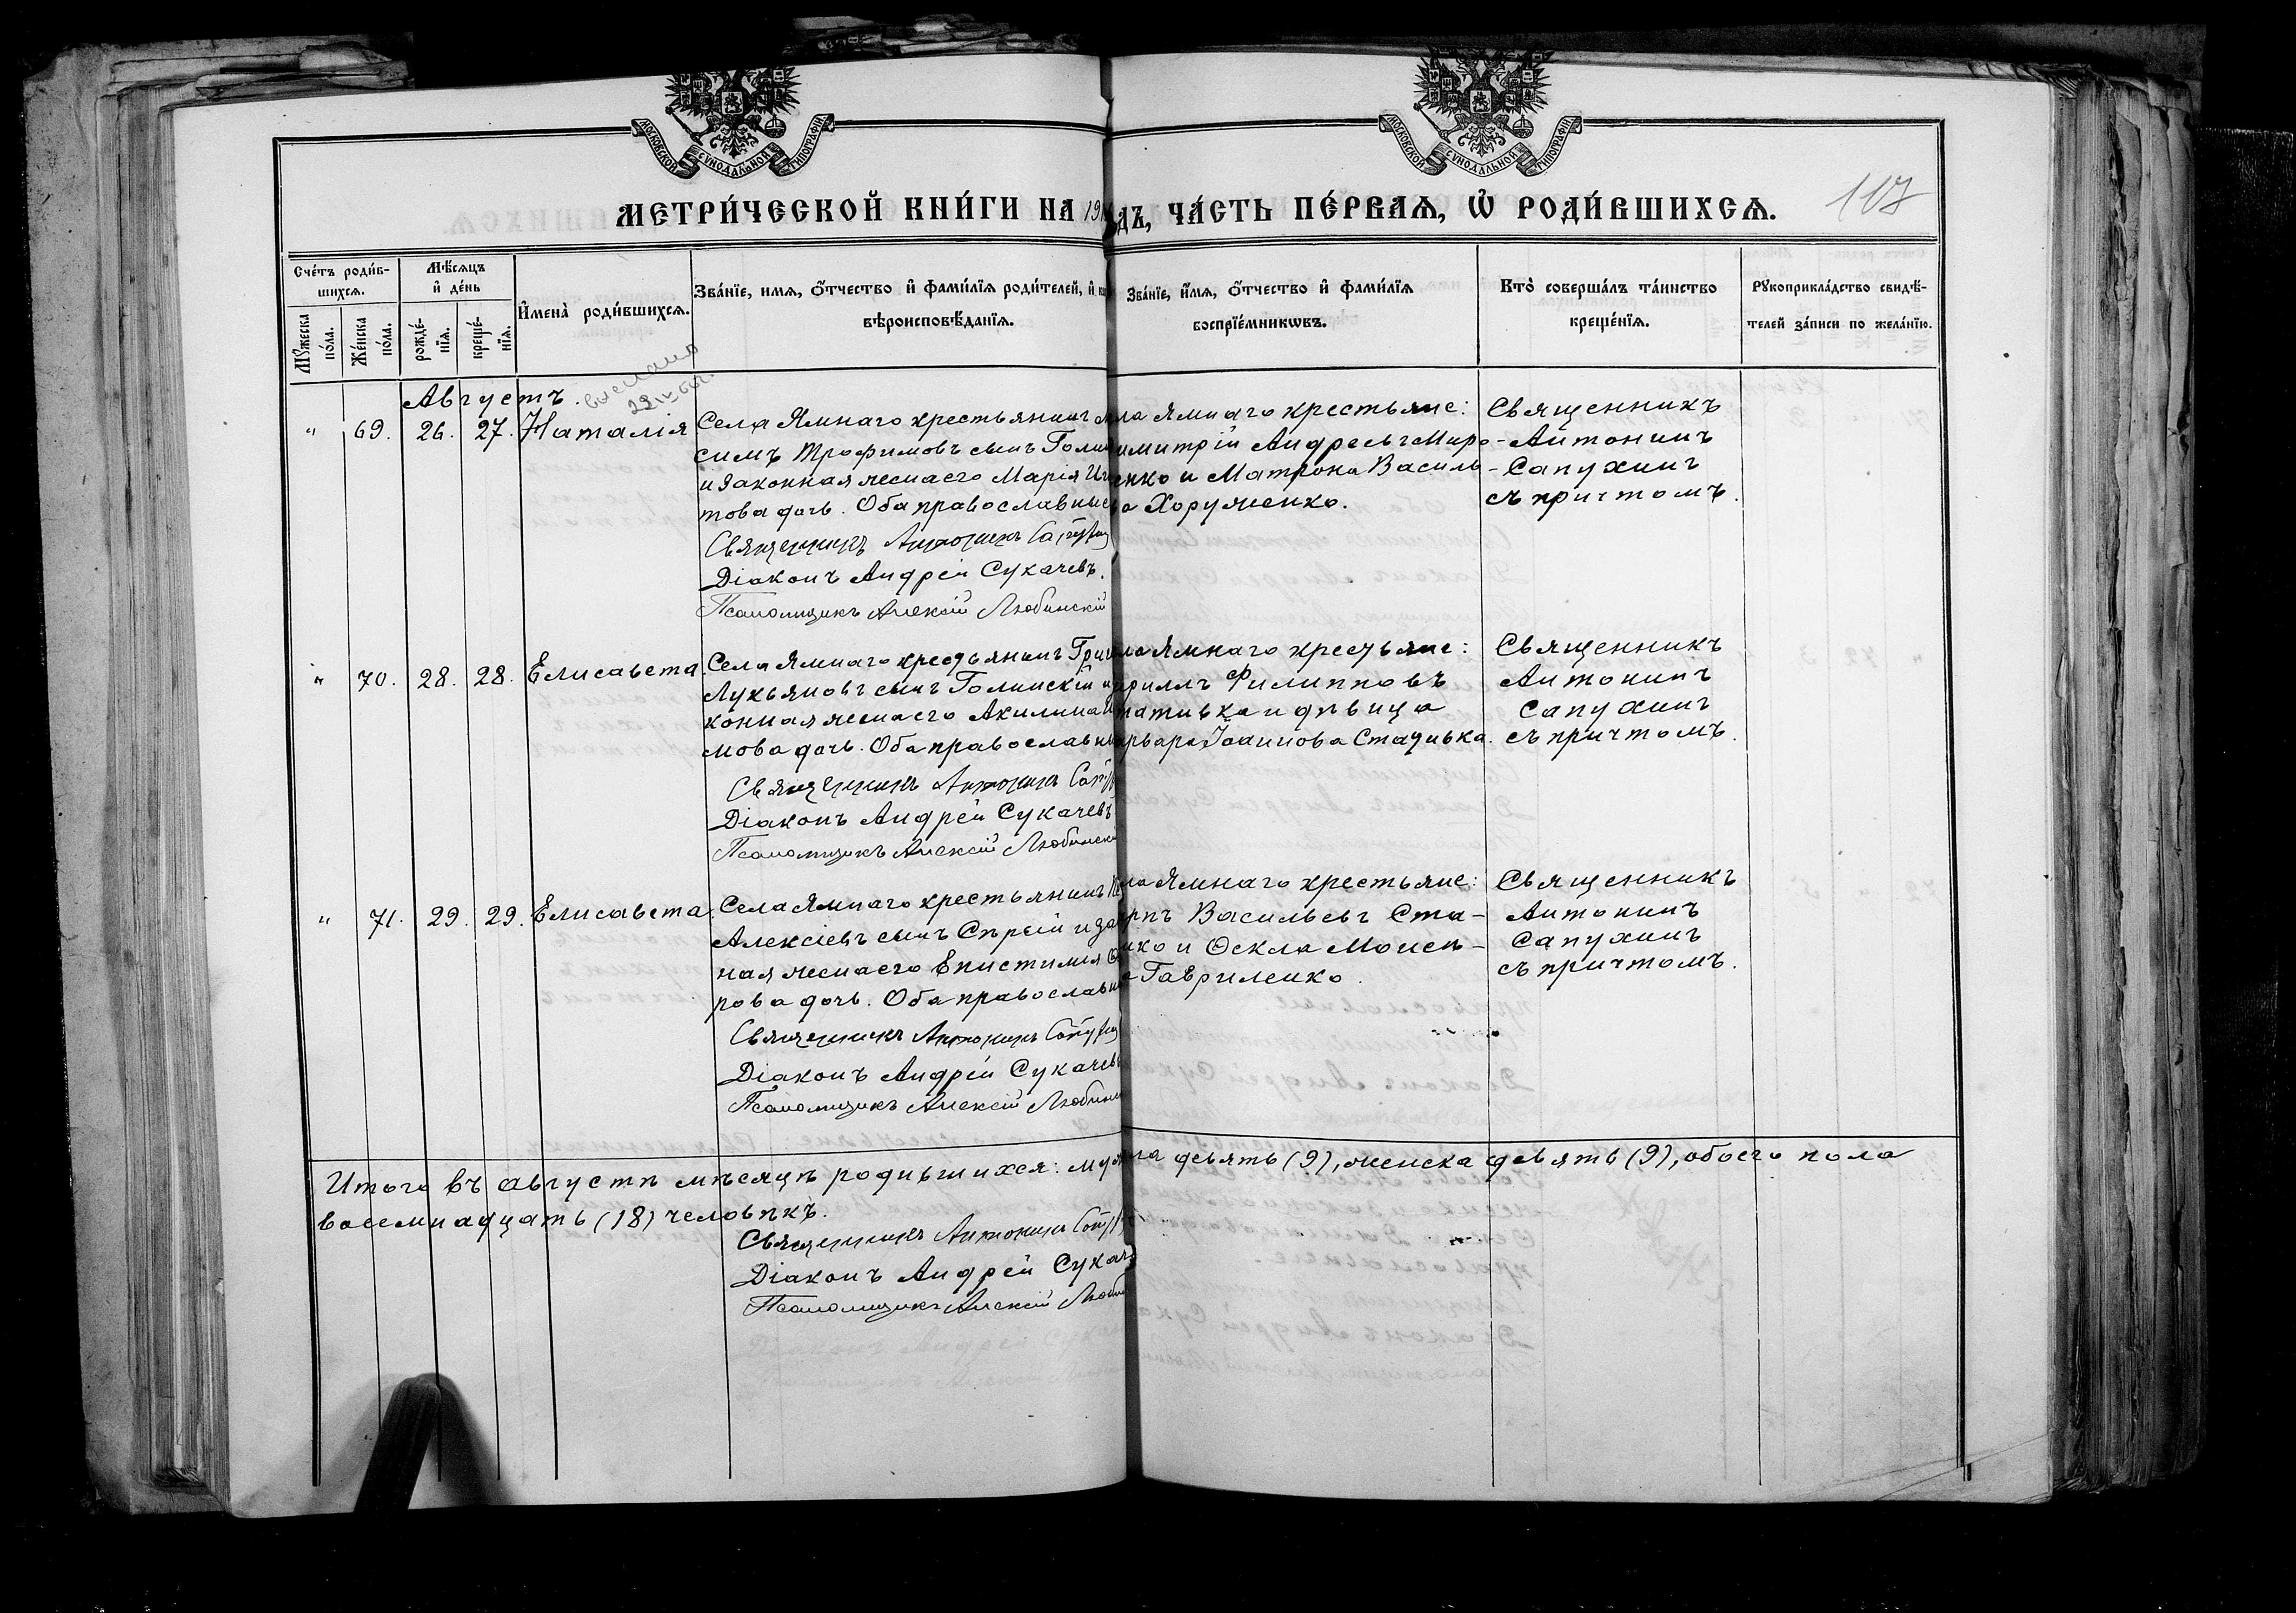 МОСКОВСКОЙ СѴНОДАЛЬНОЙ ТИПОГРАФІИ
МОСКОВСКОЙ СѴНОДАЛЬНОЙ ТИПОГРАФІИ
МЕТРИ́ЧЕСКОЙ КНИ́ГИ НА 19
ДЪ, ЧА́СТЬ ПЕ́РВАѦ, Ѡ҆ РОДИ́ВШИХСѦ.
117
Сче́тъ роди́в-
шихсѧ.
Мꙋ́жеска по́ла.
Же́нска по́ла.
Мѣ́сѧцъ
и҆ де́нь
рожде́-
нїѧ.
креще́-
нїѧ.
И҆мена̀ роди́вшихсѧ.
Зва́нїе, имѧ, ѻ҆́тчество и҆ фами́лїѧ роди́телей, и҆
вѣроисповѣ́данїѧ.
Зва́нїе, и҆́мѧ, ѻ҆́тчество и҆ фами́лїѧ
воспрїе́мникѡвъ.
Кто̀ соверша́лъ та́инство
креще́нїѧ.
Рꙋкоприкла́дство свидѣ́-
телей за́писи по жела́нїю.
Августъ.
выслано
" 69. 26. 27. Наталія
Села Ямнаго крестьянинъ
симъ Трофимовъ сынъ
и законная жена его Марія
това дочь. Оба православные
Священникъ Антонинъ
Діаконъ Андрей Сукачевъ.
Псаломщикъ Алексій Любинскій
ла Ямнаго крестьяне:
имитрій Андреевъ Миро-
енко и Матрона Василь-
а Хоруженко.
Священникъ
Антонинъ
Сапухинъ
съ причтомъ.
" 70. 28. 28. Елисавета.
Села Ямнаго крестьянинъ
Лукьяновъ сынъ Голинскій и
конная жена его Акилина
мова дочь. Оба православн
Священникъ Антонинъ
Діаконъ Андрей Сукачевъ
Псаломщикъ Алексій Любинскі
ла Ямнаго крестьяне:
ириллъ Филипповъ
тативка и дѣвица
арвара Іоаннова Стативка.
Священникъ
Антонинъ
Сапухинъ
съ причтомъ.
" 71. 29. 29. Елисавета.
Села Ямнаго крестьянинъ
Алексіевъ сынъ Сѣрый и за
ная жена его Епистимія
рова дочь. Оба православн
Священникъ Антонинъ
Діаконъ Андрей Сукачевъ
Псаломщикъ Алексій Любинс
ла Ямнаго крестьяне:
рпъ Васильевъ Ста-
нко и Ѳекла Моисѣ-
а Гавриленко.
Священникъ
Антонинъ
Сапухинъ
съ причтомъ.
Итого въ августѣ мѣсяцѣ родившихся: муж
ка девять (9), женска девять (9), обоего пола
восемнадцать (18) человѣкъ.
Священникъ Антонинъ
Діаконъ Андрей Сукаче
Псаломщикъ Алексій Любин